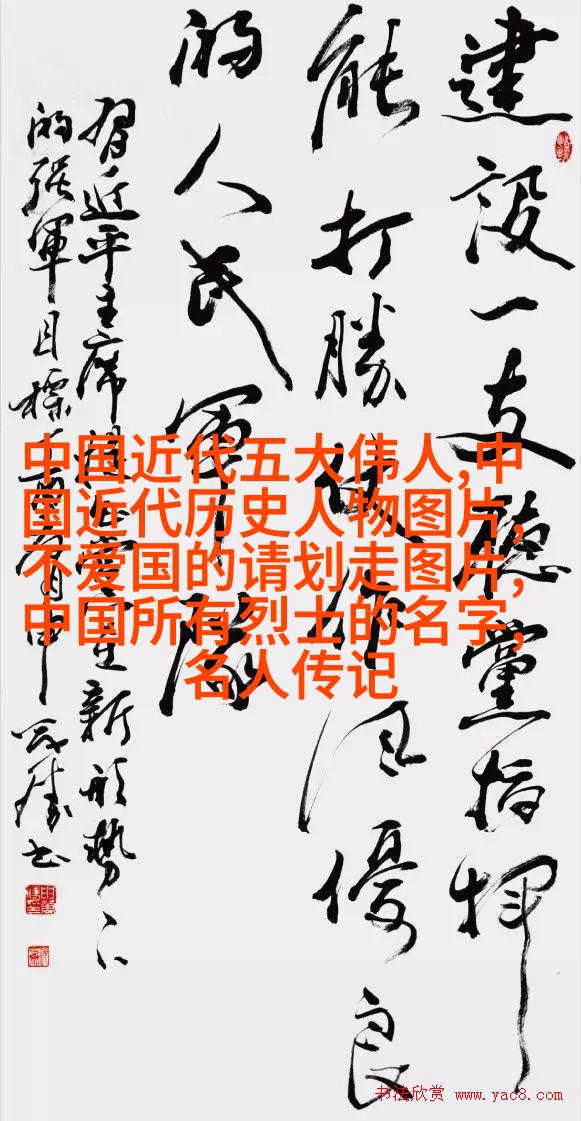 建設一支聽黨指揮
能打勝仗作风優良
的人民軍隊
習近平主席 黨在新形勢下
的强軍目標 丙申 書
中国近代五大伟人,中
国近代历史人物图片,
不爱国的请划走图片,
中国所有烈士的名字,
名人传记
书法欣赏 www.yac8.com